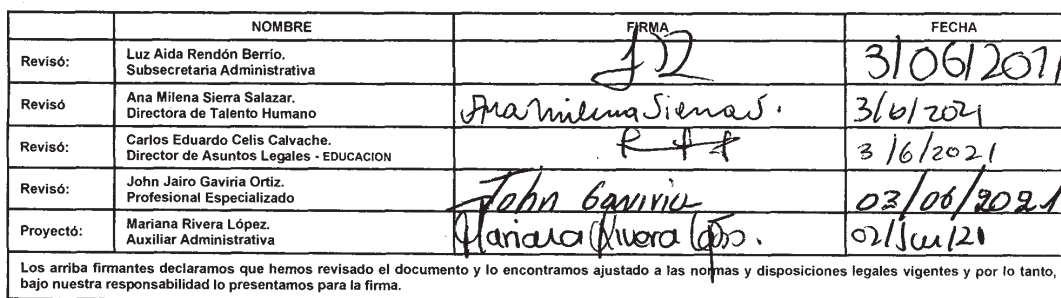 NOMBRE FIRMA FECHA
Revisó: Luz Aida Rendón Berrio.
Subsecretaria Administrativa 3/06/2021
Revisó Ana Milena Sierra Salazar.
Directora de Talento Humano Ana Milena Sierra S. 3/6/2021
Revisó: Carlos Eduardo Celis Calvache.
Director de Asuntos Legales - EDUCACION 3/6/2021
Revisó: John Jairo Gaviria Ortiz.
Profesional Especializado John Gaviria 03/06/2021
Proyectó: Mariana Rivera López.
Auxiliar Administrativa Mariana Rivera López. 02/Jun/21
Los arriba firmantes declaramos que hemos revisado el documento y lo encontramos ajustado a las normas y disposiciones legales vigentes y por lo tanto,
bajo nuestra responsabilidad lo presentamos para la firma.